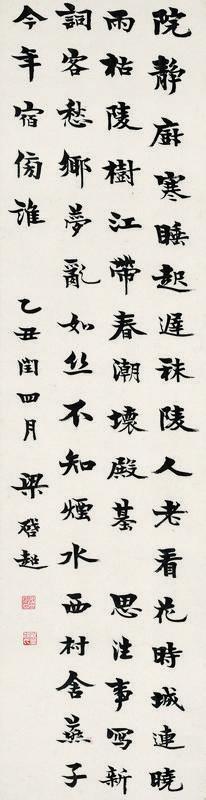 院静厨寒睡起遲秣陵人老看花時城連曉
雨枯陵樹江帶春潮壞殿基 思往事寫新
詞客愁鄉夢亂如丝不知煙水西村舍燕子
今年宿傍誰
乙丑閏四月 梁啓超